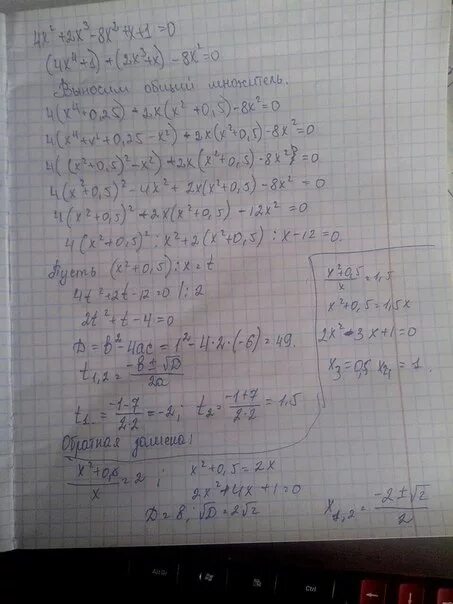 4x² + 2x³ - 8x² + x + 1 = 0
(4x⁴ + 1) + (2x³ + x) - 8x² = 0
Выносим общий множитель.
4(x⁴ + 0,25) + 2x(x² + 0,5) - 8x² = 0
4(x⁴ + x² + 0,25 - x²) + 2x(x² + 0,5) - 8x² = 0
4((x² + 0,5)² - x²) + 2x(x² + 0,5) - 8x² = 0
4(x² + 0,5)² - 4x² + 2x(x² + 0,5) - 8x² = 0
4(x² + 0,5)² + 2x(x² + 0,5) - 12x² = 0
4(x² + 0,5)² : x² + 2(x² + 0,5) : x - 12 = 0.
Пусть (x² + 0,5) : x = t
4t² + 2t - 12 = 0 | : 2
2t² + t - 4 = 0
D = b² - 4ac = 1² - 4·2·(-6) = 49.
t₁,₂ = (-b ± √D)/2a
t₁ = (-1-7)/2·2 = -2; t₂ = (-1+7)/2·2 = 1,5
Обратная замена:
(x² + 0,5)/x = 2 ; x² + 0,5 = 2x
2x² + 4x + 1 = 0
D = 8, √D = 2√2
x₁,₂ = (-2 ± √2)/2
(x² + 0,5)/x = 1,5
x² + 0,5 = 1,5x
2x² - 3x + 1 = 0
x₃ = 0,5 x₄ = 1.
Alt
Ctrl